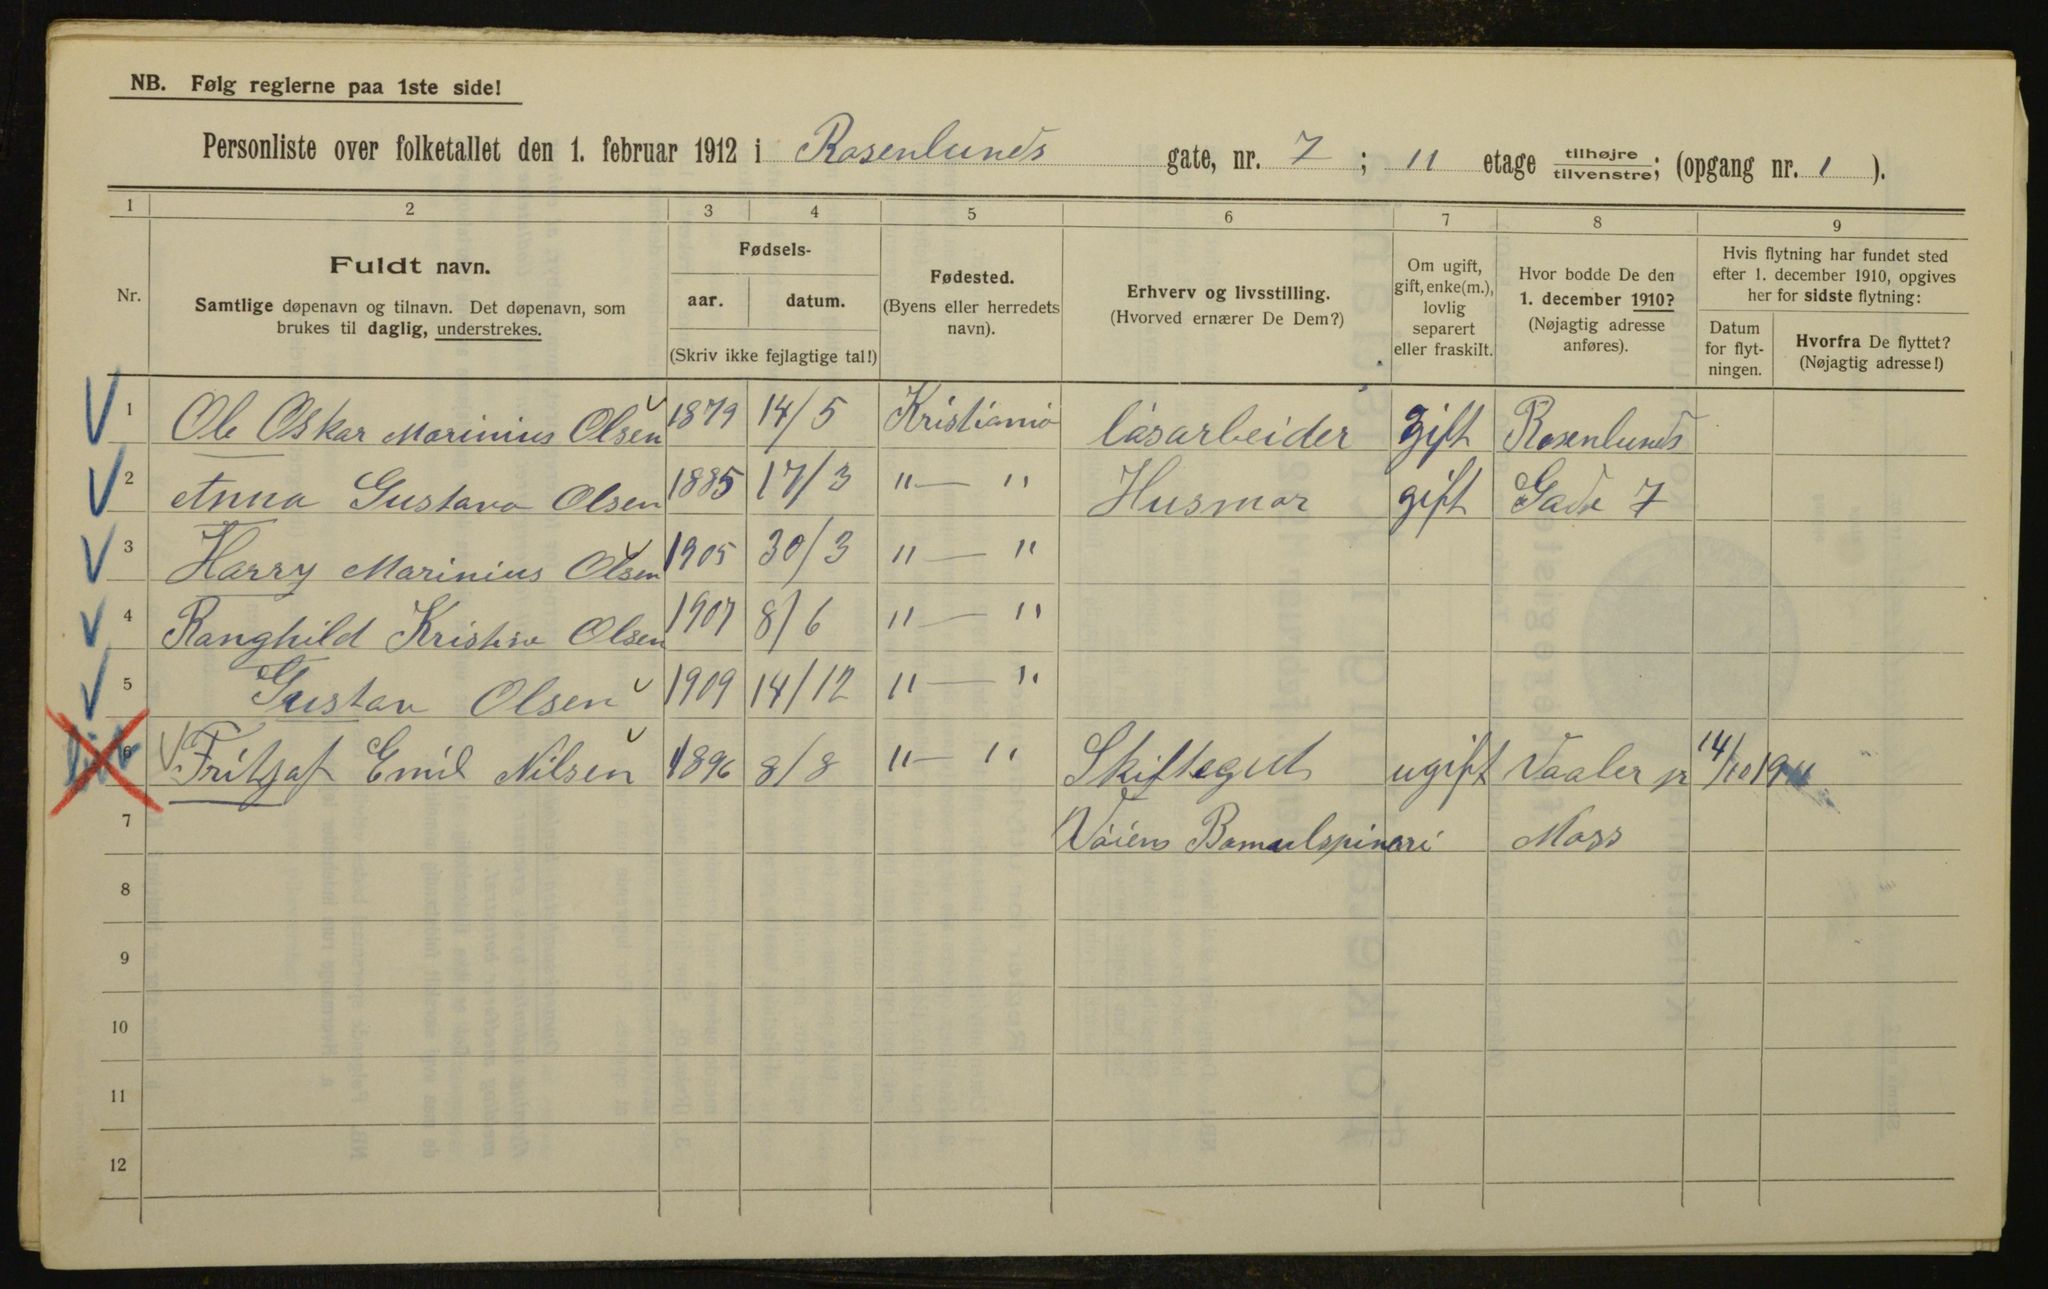 NB. Følg reglerne paa 1ste side!
Personliste over folketallet den 1. februar 1912 i Rosenlunds gate, nr. 7 ; 11 etage tilhøjre/tilvenstre; (opgang nr. 1 ).
1 2 3 4 5 6 7 8 9
Nr.
Fuldt navn.
Samtlige døpenavn og tilnavn. Det døpenavn, som
brukes til daglig, understrekes.
Fødsels-
aar. datum.
(Skriv ikke fejlagtige tal!)
Fødested.
(Byens eller herredets
navn).
Erhverv og livsstilling.
(Hvorved ernærer De Dem?)
Om ugift,
gift, enke(m.),
lovlig
separert
eller fraskilt.
Hvor bodde De den
1. december 1910?
(Nøjagtig adresse
anføres).
Hvis flytning har fundet sted
efter 1. december 1910, opgives
her for sidste flytning:
Datum
for flyt-
ningen.
Hvorfra De flyttet?
(Nøjagtig adresse!)
1 Ole Oskar Marinius Olsen 1879 14/5 Kristiania låsarbeider gift Rosenlunds
2 Anna Gustava Olsen 1885 17/3 " — " Husmor gift Gade 7
3 Harry Marinius Olsen 1905 30/3 " — "
4 Ranghild Kristine Olsen 1907 8/6 " — "
5 Gustav Olsen 1909 14/12 " — "
6 Fritjaf Emil Nilsen 1896 8/8 " — " Skiftegut ugift Vaaler pr 14/10 1911
7 Vøiens Bomulspineri Moss
8
9
10
11
12